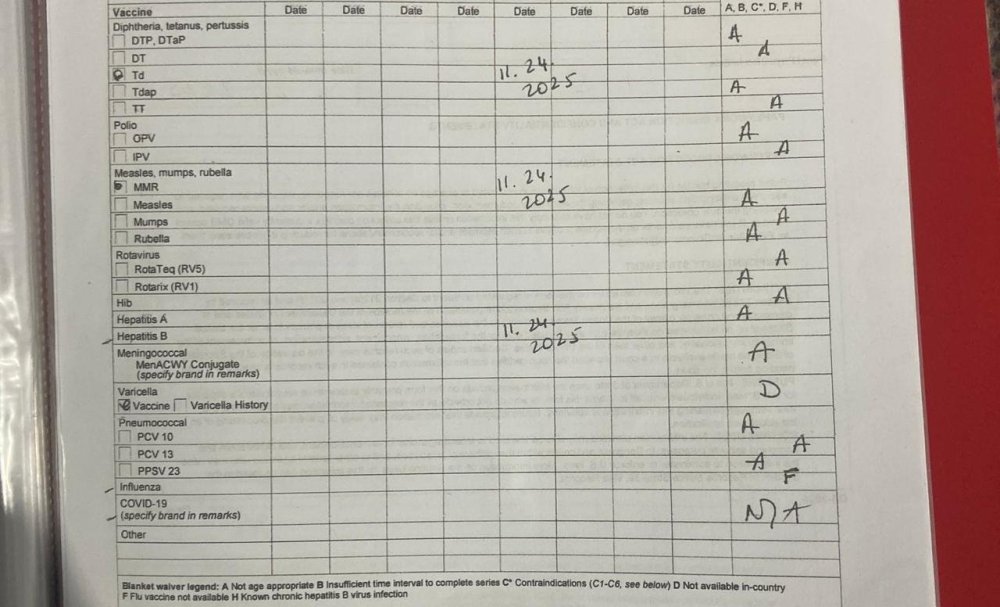 Vaccine Date Date Date Date Date Date Date Date A, B, C*, D, F, H
Diphtheria, tetanus, pertussis
DTP, DTaP A
DT A
Td 11. 24. 2025
Tdap A
TT A
Polio
OPV A
IPV A
Measles, mumps, rubella
MMR 11. 24. 2025
Measles A
Mumps A
Rubella A
Rotavirus
RotaTeq (RV5) A
Rotarix (RV1) A
Hib A
Hepatitis A A
Hepatitis B 11. 24. 2025
Meningococcal
MenACWY Conjugate A
(specify brand in remarks)
Varicella
Vaccine Varicella History D
Pneumococcal
PCV 10 A
PCV 13 A
PPSV 23 A
Influenza F
COVID-19
(specify brand in remarks) N/A
Other
Blanket waiver legend: A Not age appropriate B Insufficient time interval to complete series C* Contraindications (C1-C6, see below) D Not available in-country
F Flu vaccine not available H Known chronic hepatitis B virus infection